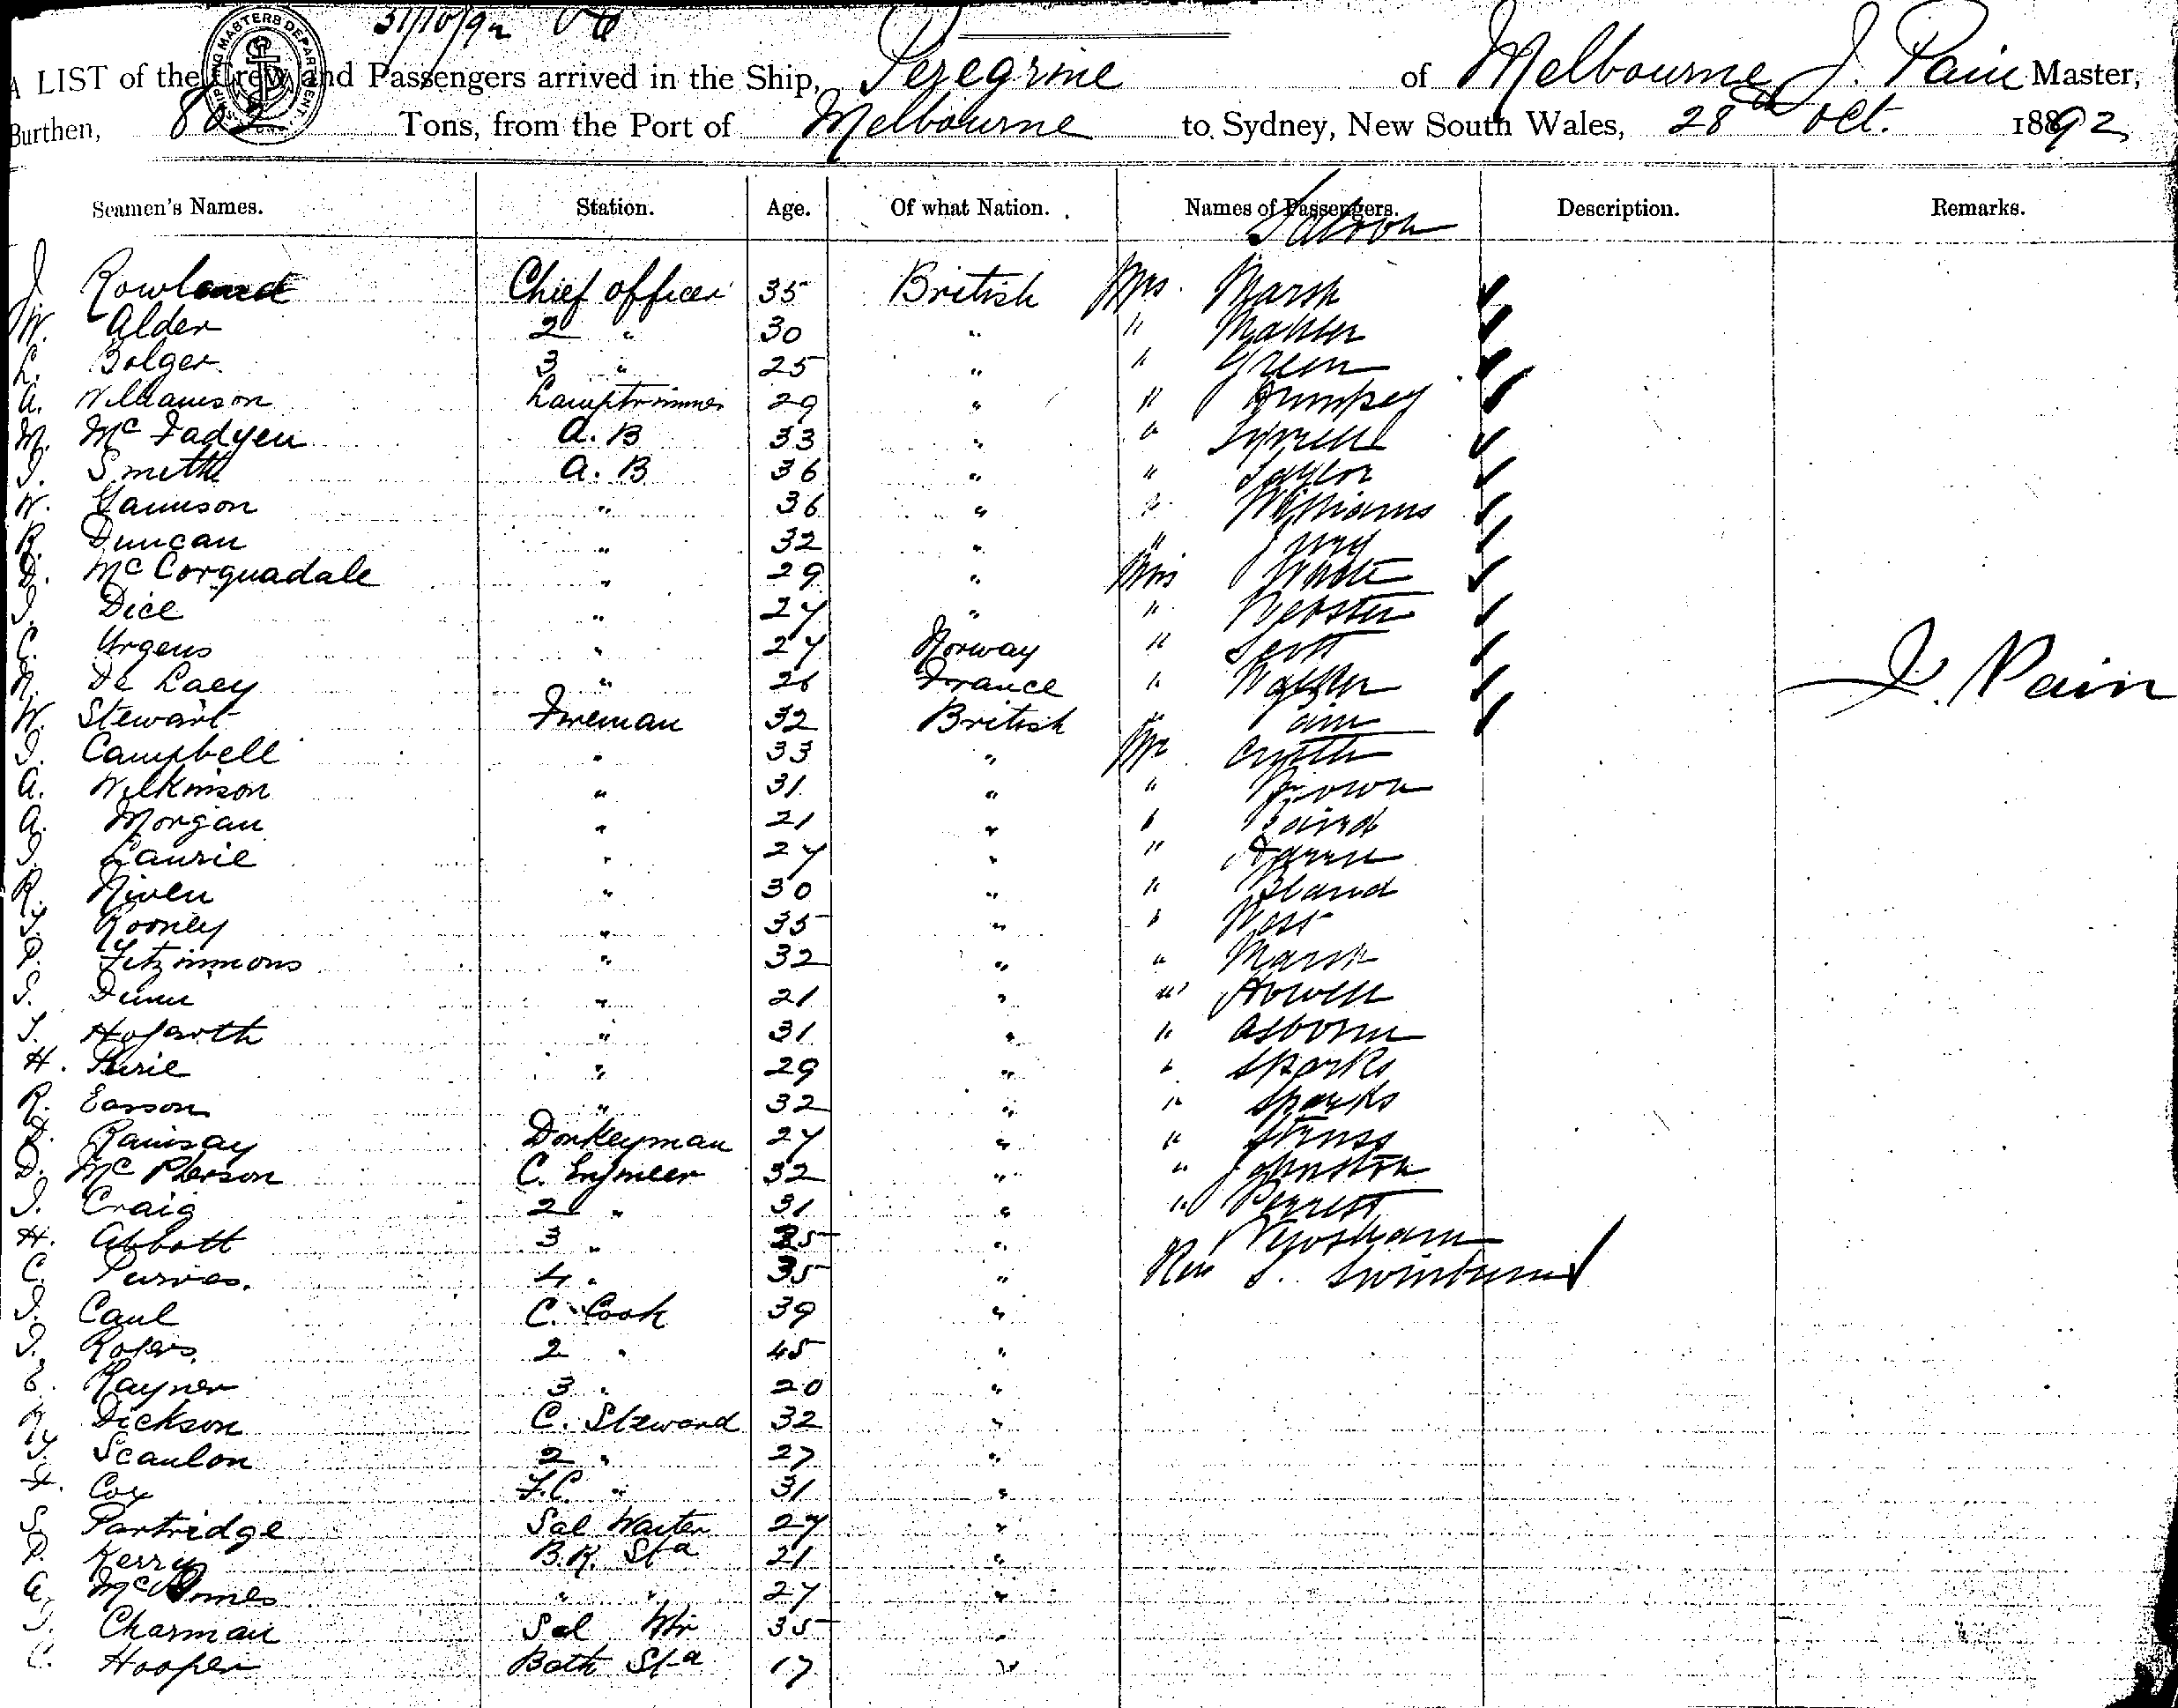 31/10/92
SHIPPING MASTERS DEPARTMENT
A LIST of the Crew and Passengers arrived in the Ship, Peregrine of Melbourne J. Pain Master,
Burthen, 882 Tons, from the Port of Melbourne to Sydney, New South Wales, 28th Oct. 1892
Seamen's Names. Station. Age. Of what Nation. Names of Passengers. Description. Remarks.
Saloon
J Rowland Chief officer 35 British Mrs. Marsh
W. Alder 2 " 30 " "
L. Bolger 3 " 25 " " Green
A. Williamson Lamptrimmer 29 " "
M. Mc Fadyen A. B 33 " "
J. Smith A. B 36 " " Saylor
W. Gamuson " 36 " " Williams
R. Duncan " 32 " "
D. Mc Corquadale " 29 " Miss White
J. Dice " 24 " " Webster
C. Urgens " 24 Norway " Scott
N. De Lacy " 26 France "
W. Stewart Fireman 32 British "
J. Campbell " 33 " Mr
A. Wilkinson " 31 " " Brown
A. Morgan " 21 " " Baird
J. Laurie " 24 " "
R. Niven " 30 " " Bland
J. Rooney " 35 " " West
P. Fitzimmons " 32 " " Marsh
S. Dunn " 21 " " Howell
T. Hogarth " 31 " " Osborne
H. Pirie " 29 " " Sparks
R. Earson " 32 " " Sparks
D. Ramsay Donkeyman 24 " " Struss
D. Mc Pherson C. Engineer 32 " " Johnston
J. Craig 2 " 31 " " Perrett
H. Abbott 3 " 25 "
C. Purves. 4 " 35 " Rev S. Swinburne
J. Caul C. Cook 39 "
J. Rogers. 2 " 45 "
E. Rayner 3 " 20 "
N. Dickson C. Steward 32 "
T. Scanlon 2 " 27 "
F. Cox F.C. " 31 "
S. Partridge Sal Waiter 24 "
P. Kerry B.R. Std 21 "
A. " " 24 "
J. Charman Sal Wtr 35 "
C. Hooper Bath Std 17 "
J. Pain